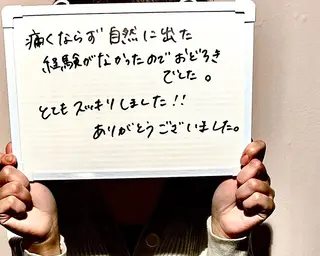 痛くならず自然に出た
経験がなかったのでおどろき
でした。
とてもスッキリしました!!
ありがとうございました。